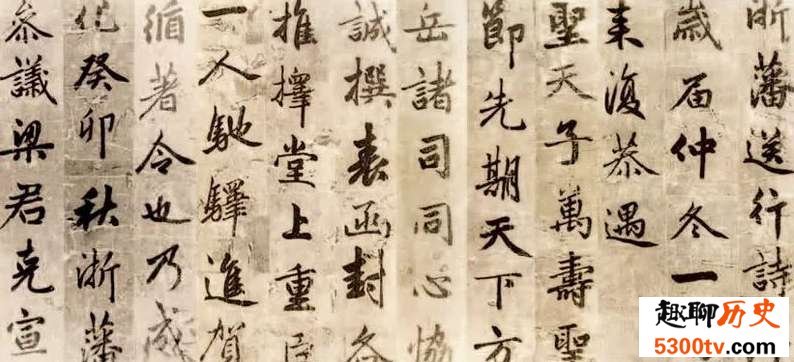 浙藩送行詩
歲屆仲冬一
来復恭遇
聖天子萬壽聖
節先期天下方
岳諸司同心恊
誠撰表函封各
推擇堂上重臣
一人馳驛進賀
循著令也乃成
化癸卯秋浙藩
叅議梁君克宣
趣聊历史
5300tv.com